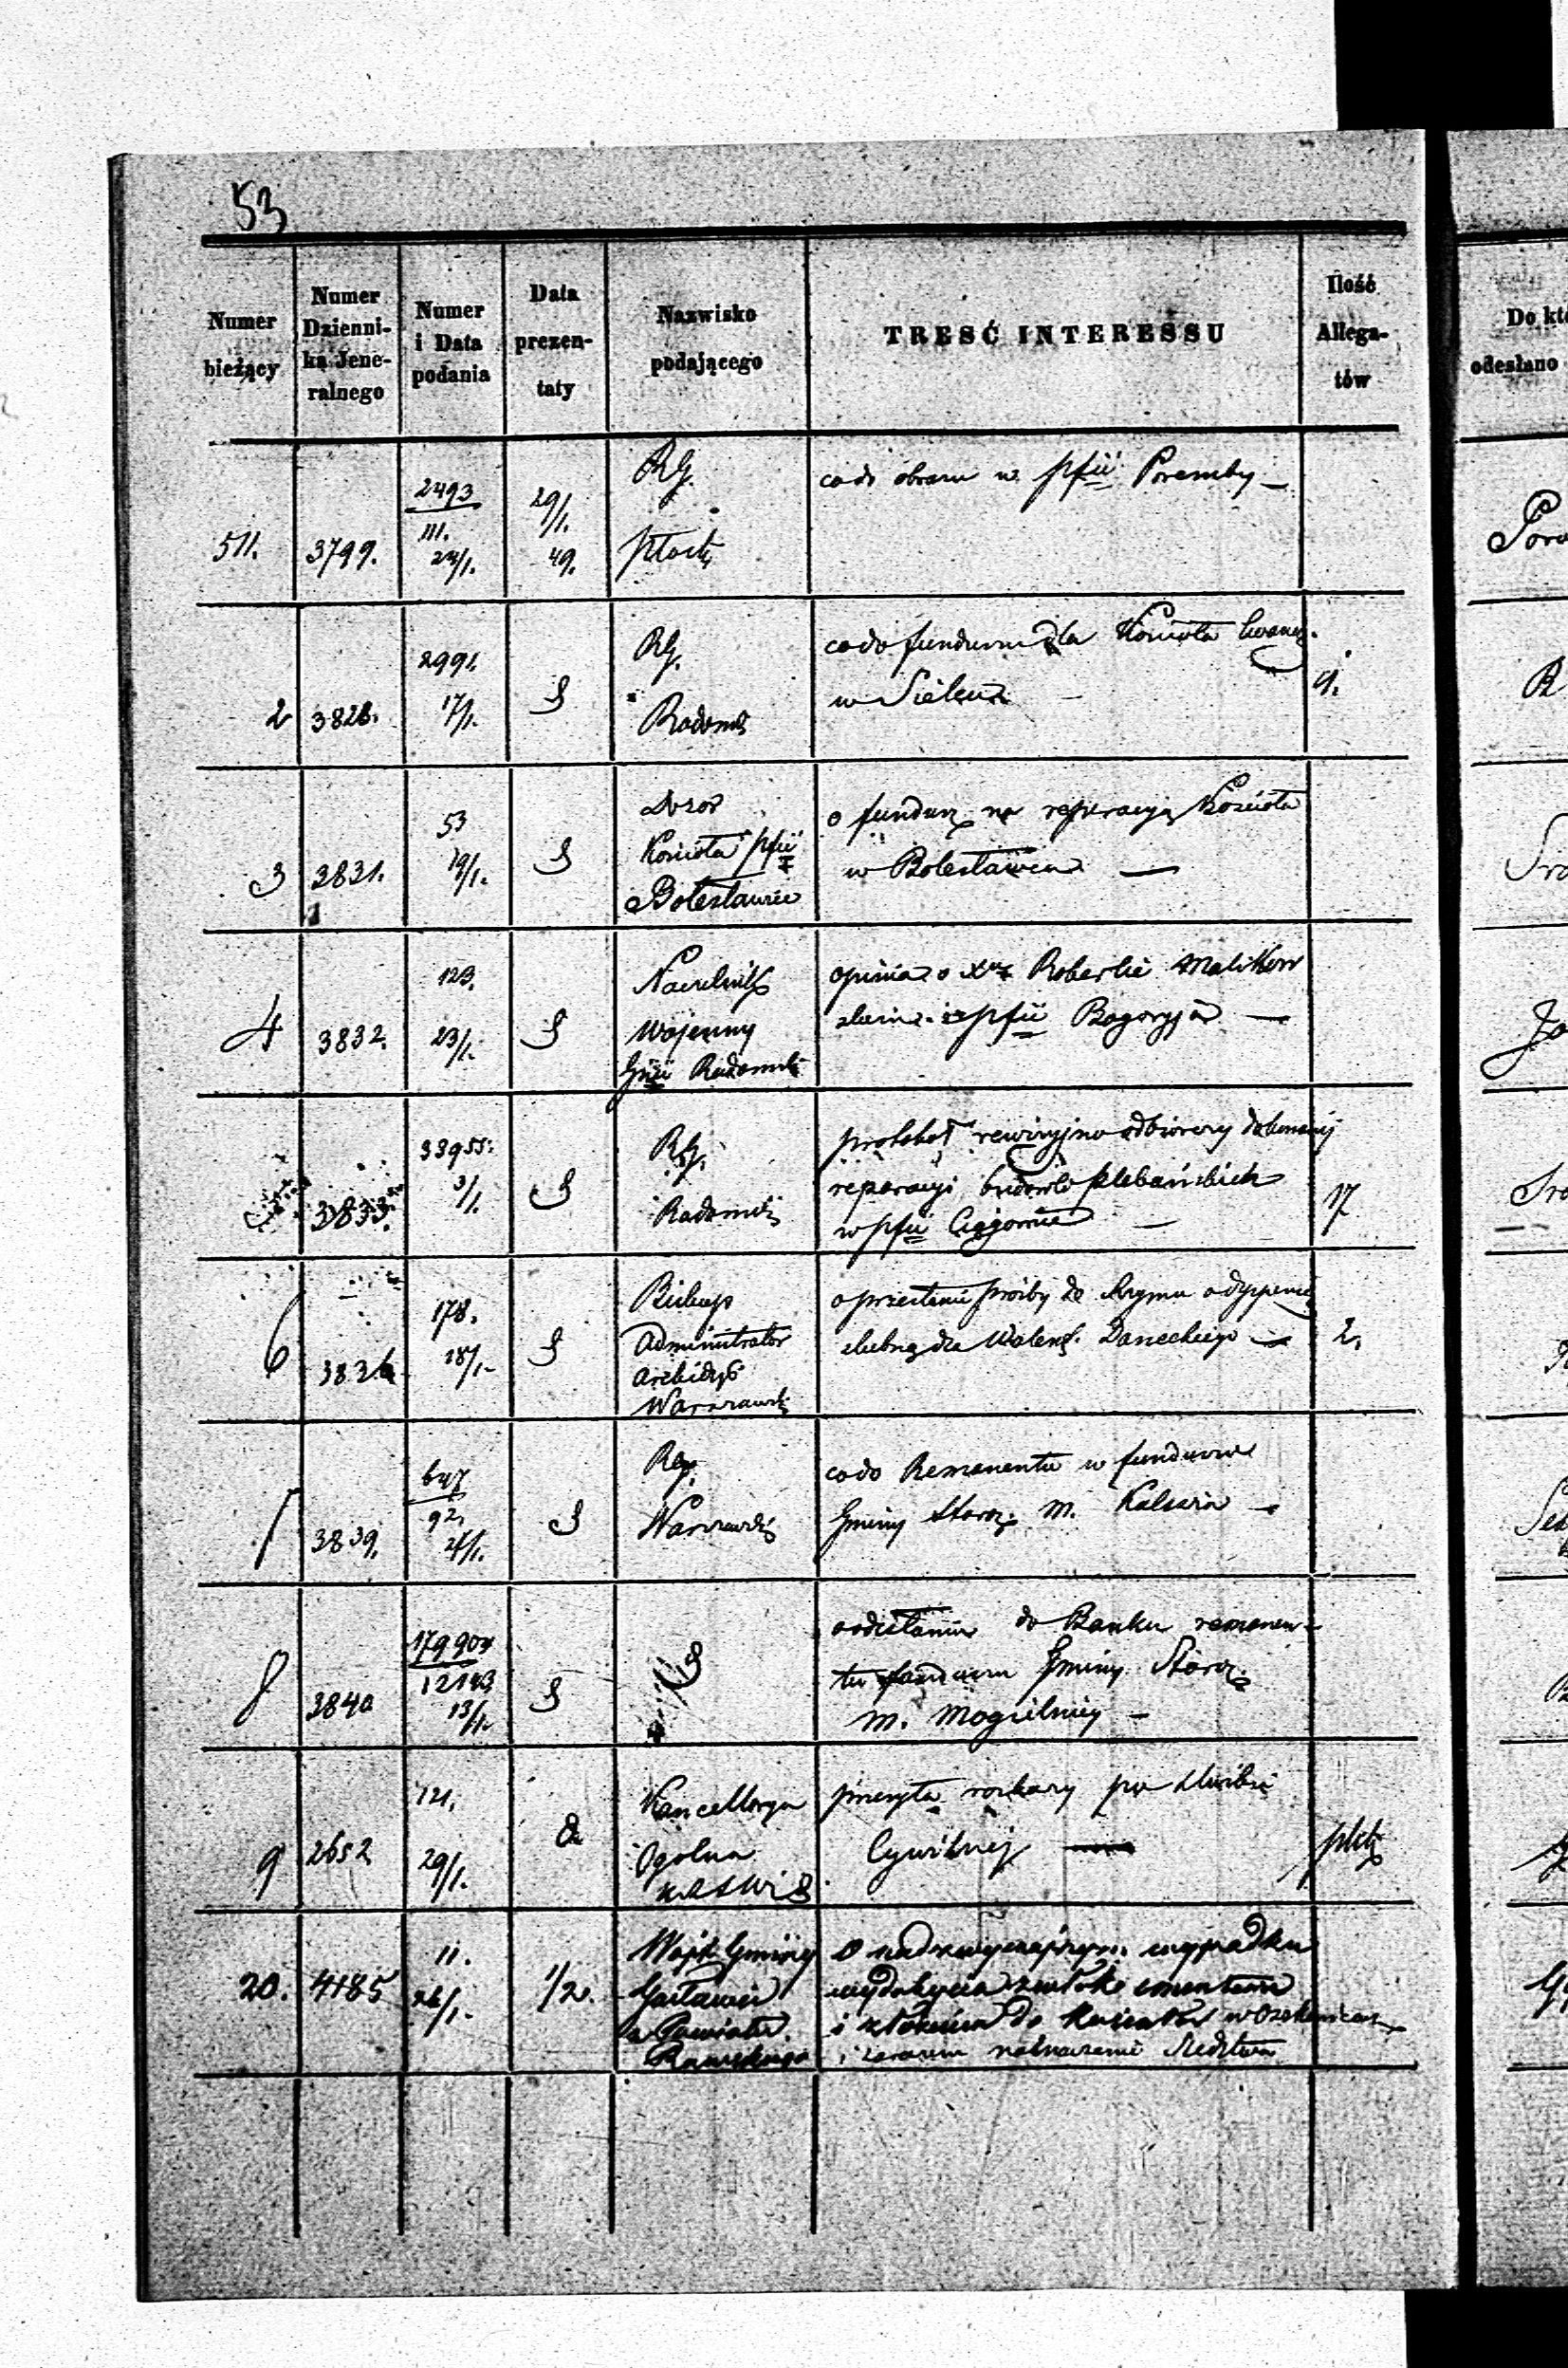 53
Numer bieżący
Numer Dziennika Jeneralnego
Numer i Data podania
Data prezentaty
Nazwisko podającego
TRESĆ INTERESSU
Ilość Allegatów
Do
odesłano
511. 3799. 2493 III. 24/1. 29/1. 49. RG. Płock co do obrazu w pfii Poremby
2 3828. 2991. 17/1. RG. Radoms co do funduszu dla Kościoła Ewang.
w 9.
3 3831. 53 19/1. Dozór
Kościoła pfii
Bolesławiec
o fundusz na reperacyą Kościoła
w Bolesławcu
4 3832. 123. 23/1. Naczelnik
Wojenny
Gnii Radomsk
opinia o Xdz Robercie Malikow
z pfii Bogoryja
3833. 33955. 3/1. RG.
Radomsk
protokół rewizyjno odbiorczy dokonanej
reperacyi budowlo plebańskich
w pfii 17
6 178. 18/1. Biskup
Administrator
Archidyec
Warszawsk
o przesłanie prośby do Rzymu o dyspensę
ślubną dla Walent. Daneckiego 2.
7 3839. 647 92. 24/1. RG.
Warszawsk
co do Remanentu w funduszu
Gminy Staroz. m. Kałuszin
8 3840 17990 12143 13/1. o odesłaniu do Banku remanen-
tu funduszu Gminy Staroz.
m. Mogielnicy
9 2652 121. 29/1. Kancellarya
Ogólna
przesyła rozkazy po służbie
Cywilnej
20. 4185 11. 26/1. 1/2. Wójt Gminy
Powiatu
Rawskiego
O nadzwyczajnym wypadku
wydobycia zwłok z cmentarza
i złożenia do Kościoła w
i zarazem naznaczenie śledztwa